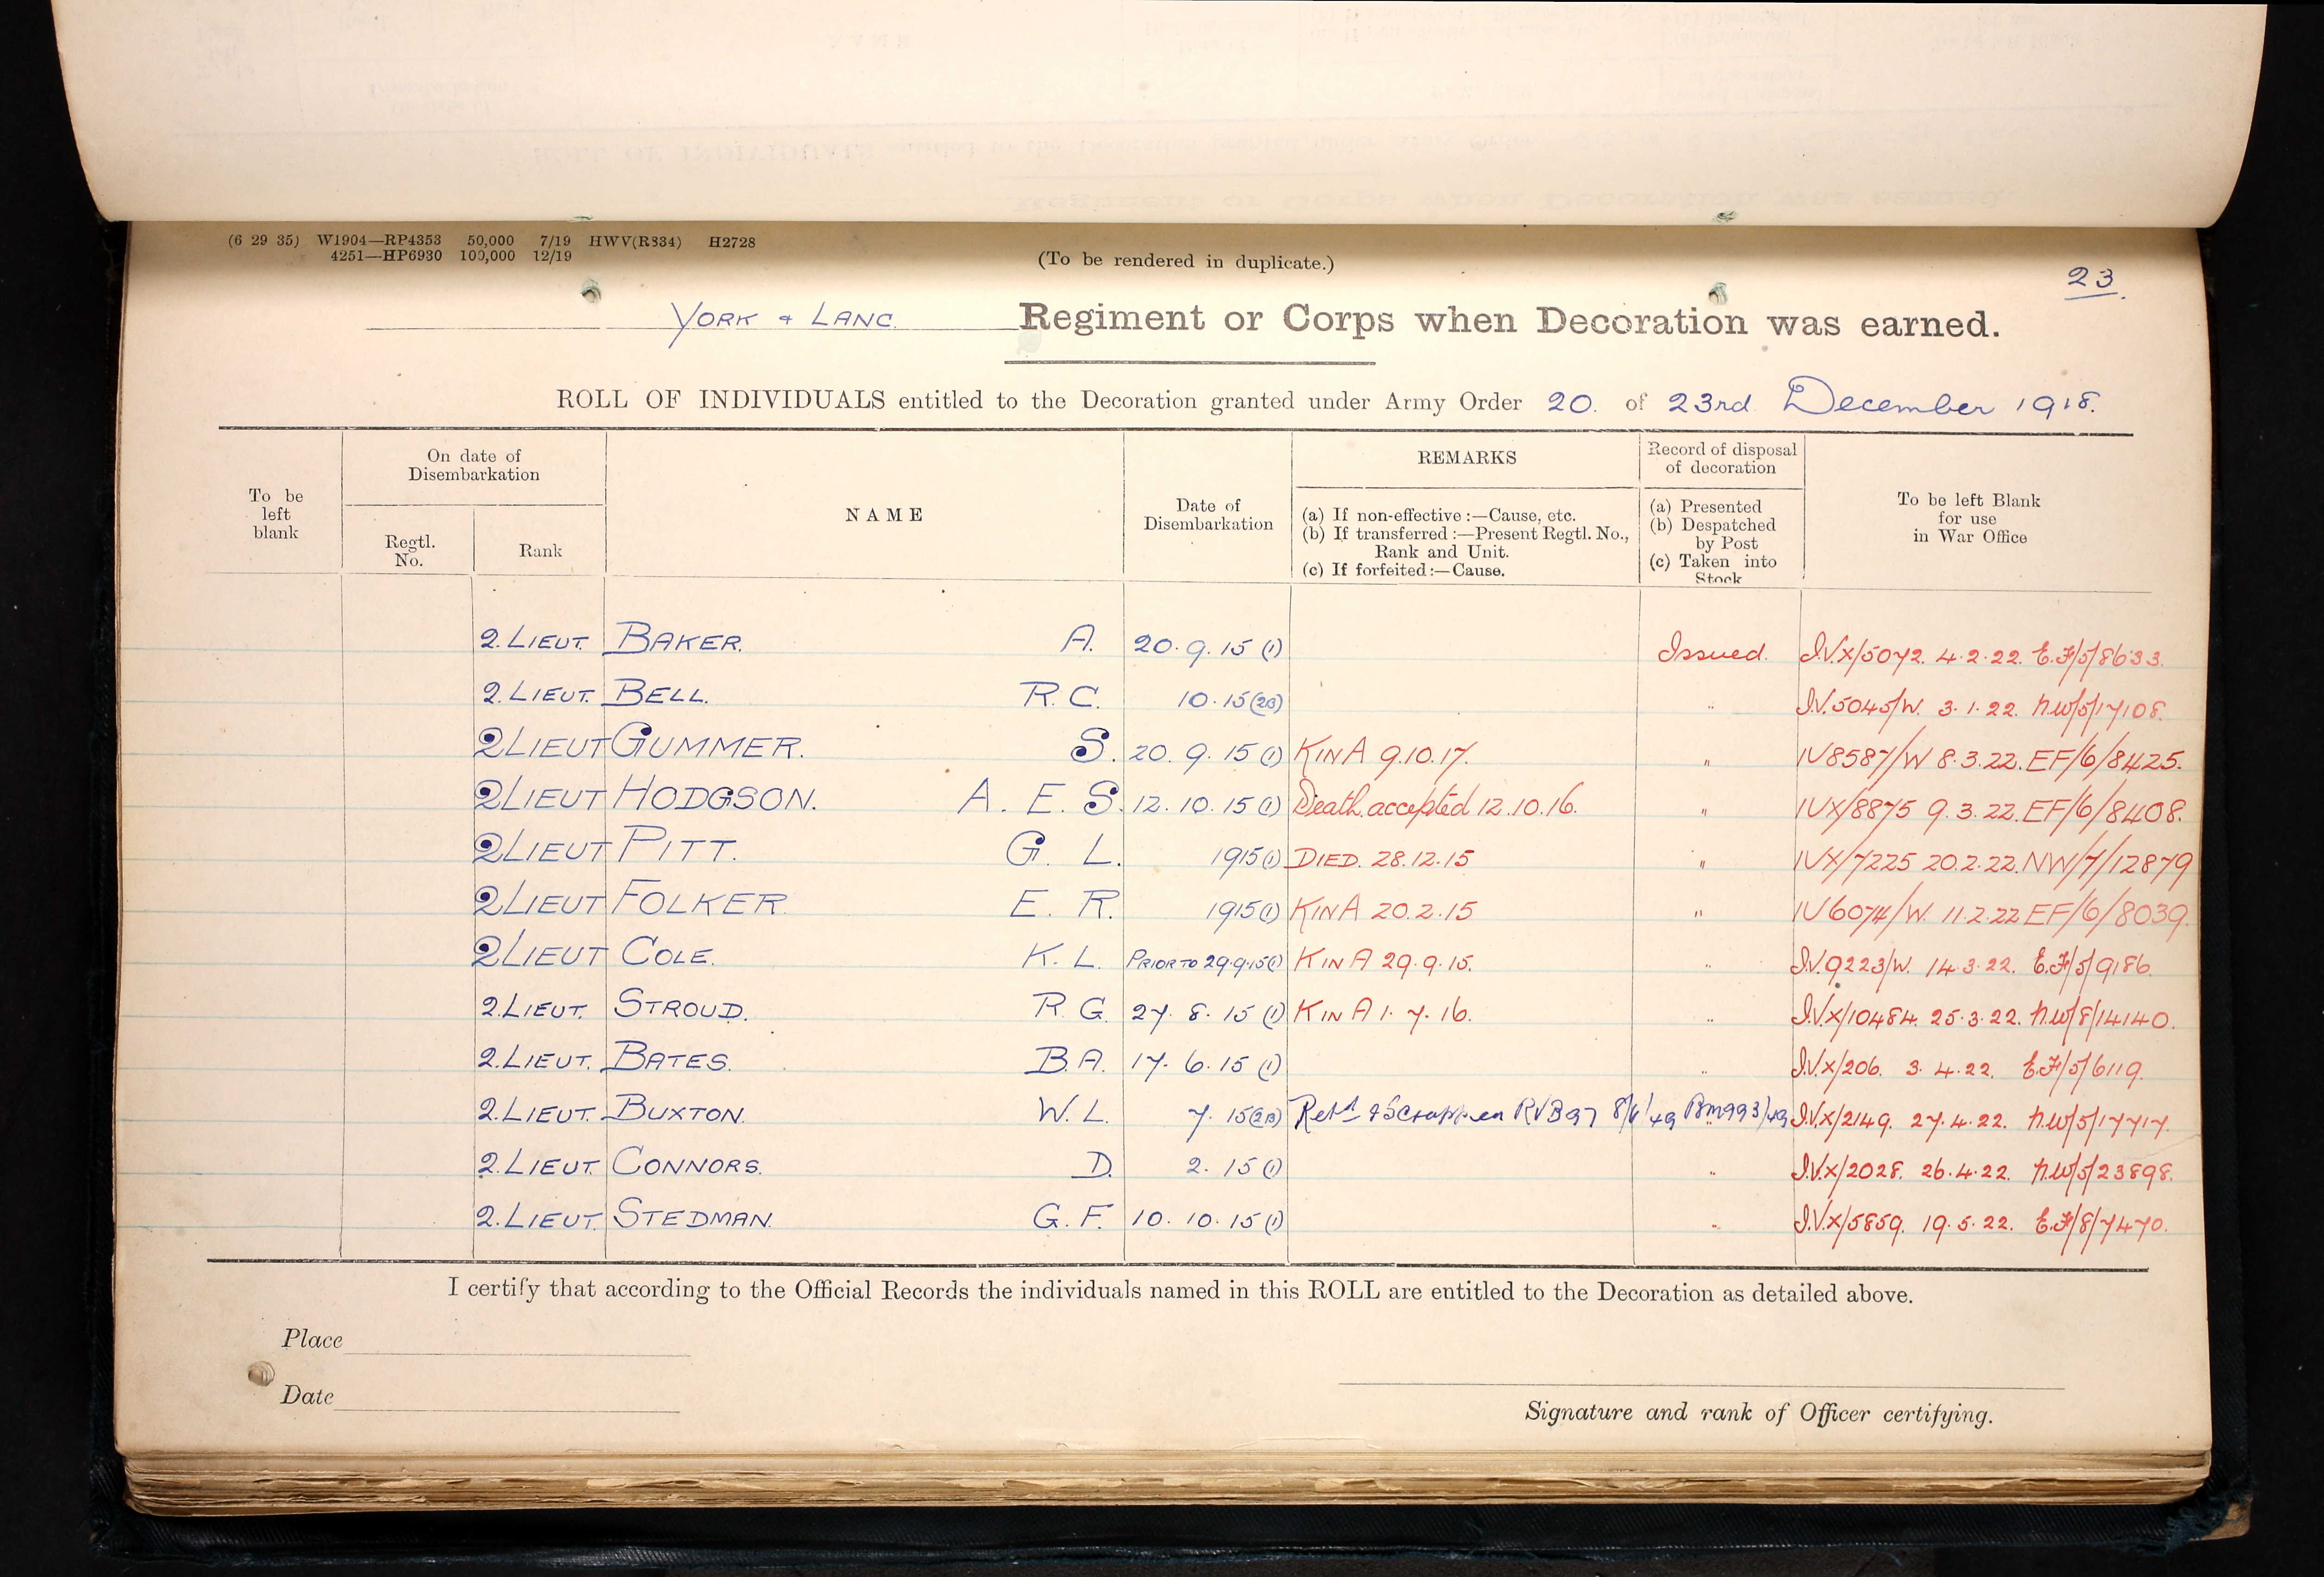 (6 29 35) W1904—RP4353 50,000 7/19 HWV(R334) H2728
4251—HP6930 100,000 12/19
(To be rendered in duplicate.)
23.
YORK & LANC. Regiment or Corps when Decoration was earned.
ROLL OF INDIVIDUALS entitled to the Decoration granted under Army Order 20. of 23rd December 1918.
To be left blank
On date of Disembarkation
Regtl. No.
Rank
NAME
Date of Disembarkation
REMARKS
(a) If non-effective :—Cause, etc.
(b) If transferred :—Present Regtl. No., Rank and Unit.
(c) If forfeited :—Cause.
Record of disposal of decoration
(a) Presented
(b) Despatched by Post
(c) Taken into Stock
To be left Blank for use in War Office
2.LIEUT. BAKER. A. 20.9.15 (1) Issued. I.V.X/5072. 4.2.22. E.F/5/8633.
2.LIEUT. BELL. R.C. 10.15(2B) " I.V.5045/W. 3.1.22. N.W/5/17108.
2LIEUT GUMMER. S. 20.9.15 (1) K IN A 9.10.17. " IV8587/W 8.3.22. EF/6/8425.
2LIEUT HODGSON. A.E.S. 12.10.15 (1) Death accepted 12.10.16. " IVX/8875 9.3.22. EF/6/8408.
2LIEUT PITT. G.L. 1915(1) DIED. 28.12.15 " IVX/7225 20.2.22. NW/7/12879
2LIEUT FOLKER. E.R. 1915(1) K IN A 20.2.15 " IV6074/W. 11.2.22 EF/6/8039.
2LIEUT COLE. K.L. PRIOR TO 29.9.15(1) K IN A 29.9.15. " I.V.9223/W. 14.3.22. E.F/5/9186.
2.LIEUT. STROUD. R.G. 27.8.15 (1) K IN A 1.7.16. " I.V.X/10484. 25.3.22. N.W/8/14140.
2.LIEUT. BATES. B.A. 17.6.15 (1) " I.V.X/206. 3.4.22. E.F/5/6119.
2.LIEUT. BUXTON. W.L. 7.15(2B) Retd & Scrapped RVB97 " I.V.X/2149. 27.4.22. N.W/5/17717.
2.LIEUT. CONNORS. D. 2.15 (1) " I.V.X/2028. 26.4.22. N.W/5/23898.
2.LIEUT. STEDMAN. G.F. 10.10.15(1) " I.V.X/5859. 19.5.22. E.F/8/7470.
I certify that according to the Official Records the individuals named in this ROLL are entitled to the Decoration as detailed above.
Place
Date
Signature and rank of Officer certifying.